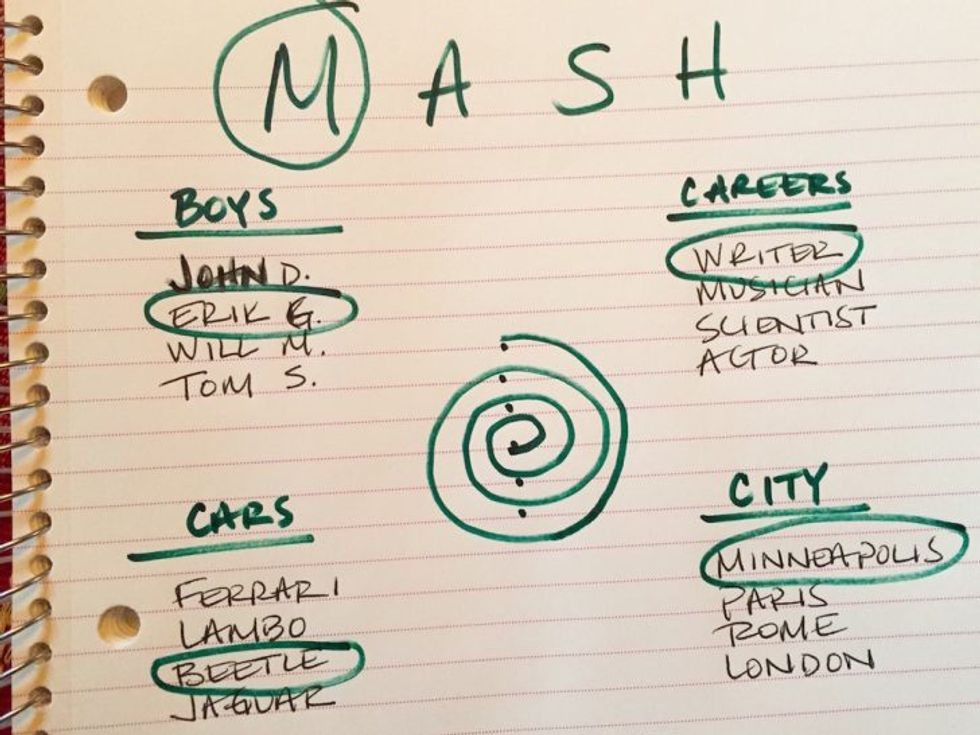 M A S H
BOYS
JOHN D.
ERIK G.
WILL M.
TOM S.
CAREERS
WRITER
MUSICIAN
SCIENTIST
ACTOR
CARS
FERRARI
LAMBO
BEETLE
JAGUAR
CITY
MINNEAPOLIS
PARIS
ROME
LONDON